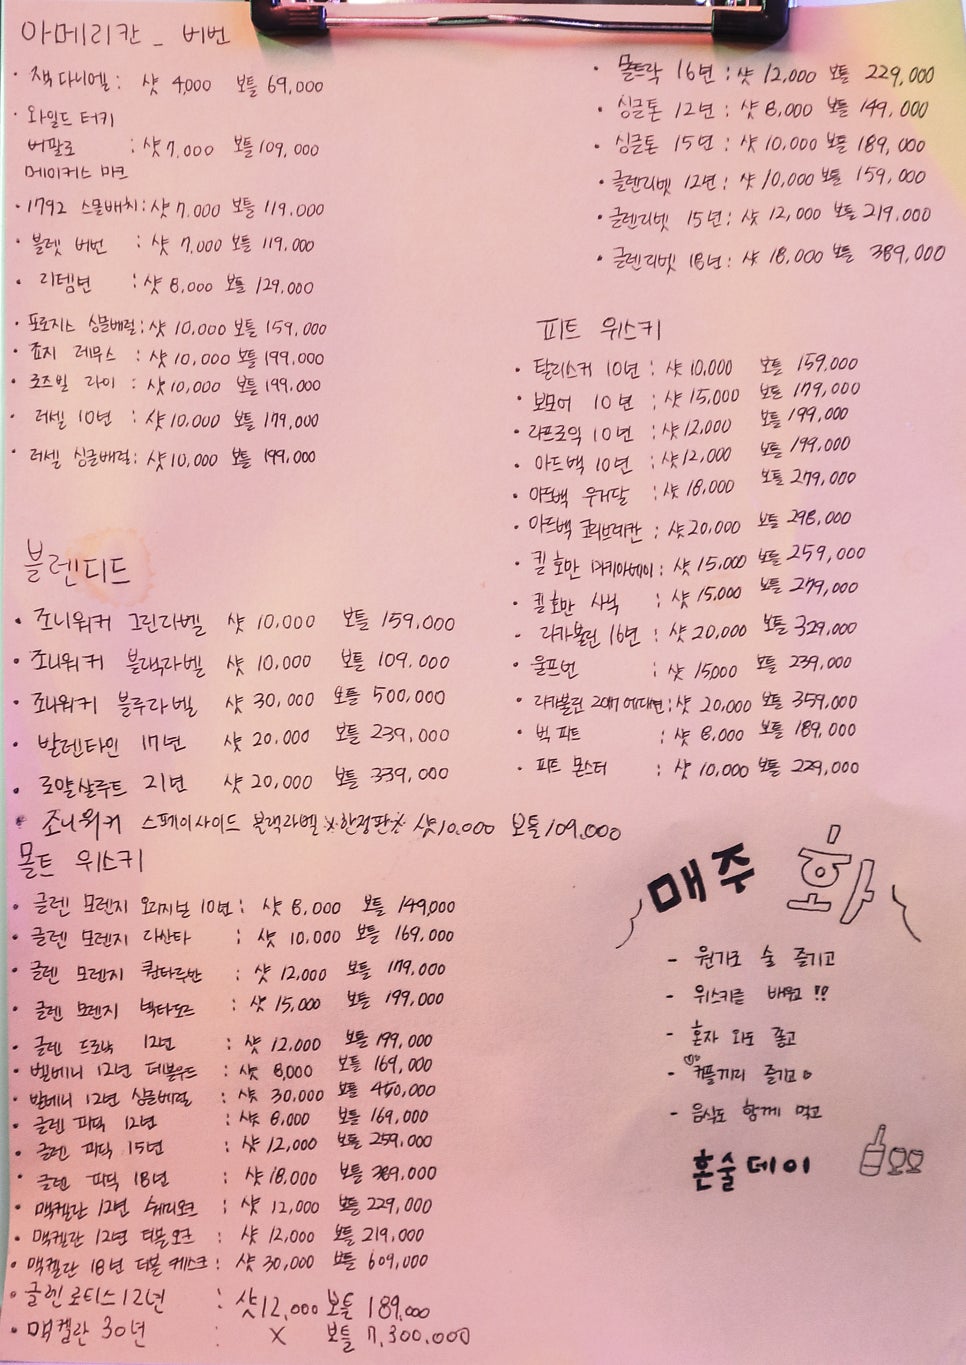 아메리칸 _ 버번
· 잭다니엘 : 샷 4,000 보틀 69,000
· 와일드 터키
버팔로 : 샷 7,000 보틀 109,000
메이커스 마크
· 1792 스몰배치 : 샷 7,000 보틀 119,000
· 불렛 버번 : 샷 7,000 보틀 119,000
· 리뎀션 : 샷 8,000 보틀 129,000
· 포로지스 싱글배럴 : 샷 10,000 보틀 159,000
· 죠지 레무스 : 샷 10,000 보틀 199,000
· 로즈빌 라이 : 샷 10,000 보틀 199,000
· 러셀 10년 : 샷 10,000 보틀 179,000
· 러셀 싱글배럴 : 샷 10,000 보틀 199,000
블렌디드
· 죠니워커 그린라벨 샷 10,000 보틀 159,000
· 죠니워커 블랙라벨 샷 10,000 보틀 109,000
· 죠니워커 블루라벨 샷 30,000 보틀 500,000
· 발렌타인 17년 샷 20,000 보틀 239,000
· 로얄살루트 21년 샷 20,000 보틀 339,000
· 죠니워커 스페이사이드 블랙라벨 ☆한정판☆ 샷 10,000 보틀 109,000
몰트 위스키
· 글렌 모렌지 오리지널 10년 : 샷 8,000 보틀 149,000
· 글렌 모렌지 라산타 : 샷 10,000 보틀 169,000
· 글렌 모렌지 퀸타루반 : 샷 12,000 보틀 179,000
· 글렌 모렌지 넥타도르 : 샷 15,000 보틀 199,000
· 글렌 드로낙 12년 : 샷 12,000 보틀 199,000
· 벨베니 12년 더블우드 : 샷 8,000 보틀 169,000
· 발베니 12년 싱글베럴 : 샷 30,000 보틀 450,000
· 글렌 피딕 12년 : 샷 8,000 보틀 169,000
· 글렌 피딕 15년 : 샷 12,000 보틀 259,000
· 글렌 피딕 18년 : 샷 18,000 보틀 389,000
· 맥켈란 12년 쉐리오크 : 샷 12,000 보틀 229,000
· 맥켈란 12년 더블오크 : 샷 12,000 보틀 219,000
· 맥켈란 18년 더블 케스크 : 샷 30,000 보틀 609,000
· 글렌로티스 12년 : 샷 12,000 보틀 189,000
· 맥켈란 30년 : X 보틀 7,300,000
· 몰트락 16년 : 샷 12,000 보틀 229,000
· 싱글톤 12년 : 샷 8,000 보틀 149,000
· 싱글톤 15년 : 샷 10,000 보틀 189,000
· 글렌리벳 12년 : 샷 10,000 보틀 159,000
· 글렌리벳 15년 : 샷 12,000 보틀 219,000
· 글렌리벳 18년 : 샷 18,000 보틀 389,000
피트 위스키
· 탈리스커 10년 : 샷 10,000 보틀 159,000
· 보모어 10년 : 샷 15,000 보틀 179,000
· 라프로익 10년 : 샷 12,000 보틀 199,000
· 아드벡 10년 : 샷 12,000 보틀 199,000
· 아드벡 우거달 : 샷 18,000 보틀 279,000
· 아드벡 코리브레칸 : 샷 20,000 보틀 298,000
· 킬호만 마키아베이 : 샷 15,000 보틀 259,000
· 킬호만 사닉 : 샷 15,000 보틀 279,000
· 라가불린 16년 : 샷 20,000 보틀 329,000
· 울프번 : 샷 15000 보틀 239,000
· 라가불린 : 샷 20,000 보틀 359,000
· 빅 피트 : 샷 8,000 보틀 189,000
· 피트 몬스터 : 샷 10,000 보틀 229,000
매주 화
- 원가로 술 즐기고
- 위스키를 배워 !?
- 혼자 와도 좋고
- 커플끼리 즐기고
- 음식도 함께 먹고
혼술데이